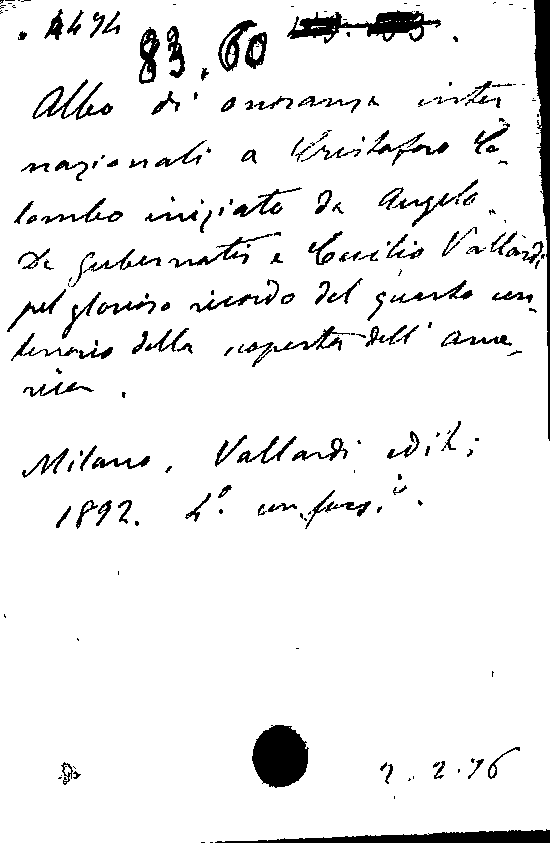 4474
83.60
Albo di onoranze inter
nazionali a Cristoforo Co-
lombo iniziato da Angelo
De Gubernatis e Cecilio Vallardi
pel glorioso ricordo del quarto cen-
tenario della scoperta dell' Ame-
rica.
Milano, Vallardi edit;
1892. 4°. con facs.i.
2.2.76